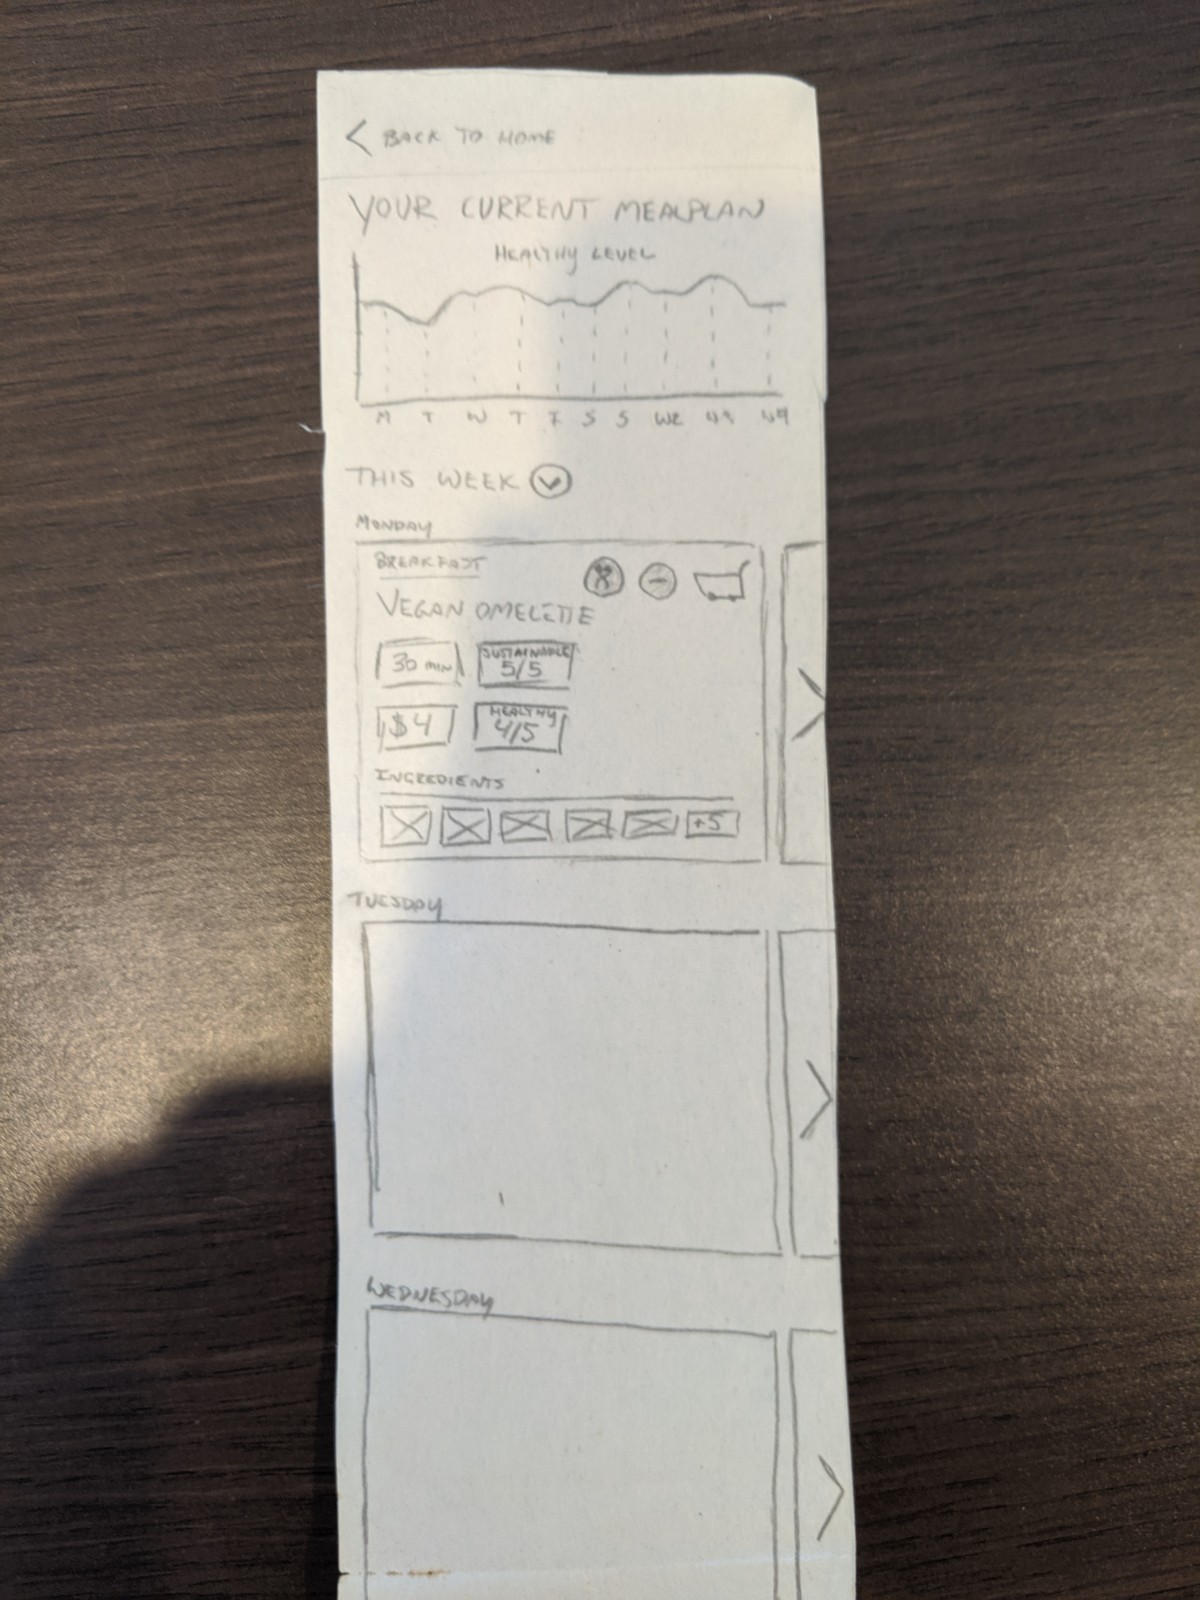 < BACK TO HOME
YOUR CURRENT MEALPLAN
HEALTHY LEVEL
M T W T F S S W2
THIS WEEK
MONDAY
BREAKFAST
VEGAN OMELETTE
30 MIN
SUSTAINABLE
5/5
$4
HEALTHY
4/5
INGREDIENTS
+5
TUESDAY
WEDNESDAY